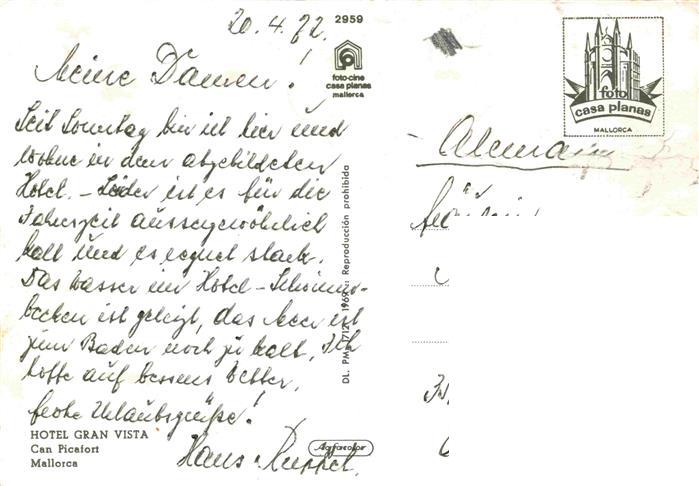 20.4.72.
2959
foto-cine
casa planas
mallorca
Meine Damen!
Seit Sonntag bin ich hier und
wohne in dem abgebildeten
Hotel. - Leider ist es für die
Jahreszeit aussergewöhnlich
kalt und es regnet stark.
Das Wasser im Hotel-Schwimm-
becken ist geheizt, das Meer ist
zum Baden noch zu kalt. Ich
hoffe auf besseres Wetter.
frohe Urlaubsgrüße!
Hans Ruppel.
HOTEL GRAN VISTA
Can Picafort
Mallorca
Agfacolor
Reproducción prohibida
foto
casa planas
MALLORCA
Alemania